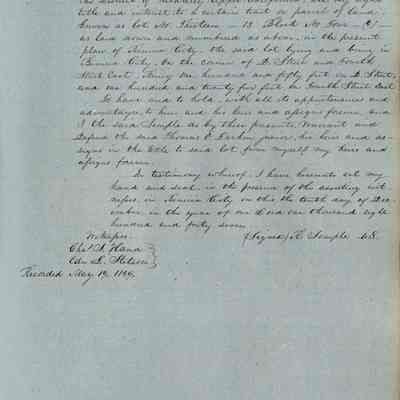 the District of Sonoma, Upper California, all my right
title and interest to a certain tract or parcel of land,
known as lot No. Thirteen - 13 Block No. Four - (4) -
as laid down and numbered as above, in the present
plan of Benicia City. the said lot lying and being in
Benicia City, On the corner of D. Street and Fourth
Street East, being one hundred and fifty feet on D. Street,
and one hundred and twenty five feet on Fourth Street East
To have and to hold, with all its appurtenances and
advantages, to him and his heirs and assigns forever, and
I the said Semple do by these presents, Warrant and
Defend the said Thomas O. Larkin junior, his heirs and as-
signs in the title to said lot from myself my heirs and
assigns forever.
In testimony whereof I have hereunto set my
hand and seal, in the presence of the assisting wit-
nesses, in Benicia City on this the tenth day of Dec-
ember, in the year of our Lord one thousand eight
hundred and forty seven.
Witnesses (Signed) R. Semple
Chas. A. Hand
Edw. L. Stetson
Recorded May 19,